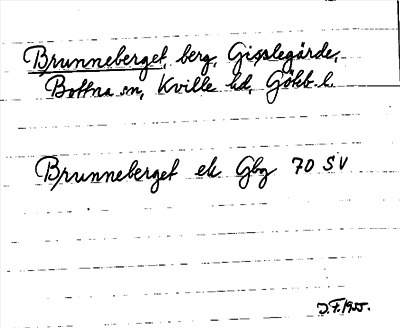 Brunneberget, berg, Gisslegärde,
Bottna sn, Kville hd, Göbb. l.
Brunneberget ek Gbg 70 SV
J.F. 1955.